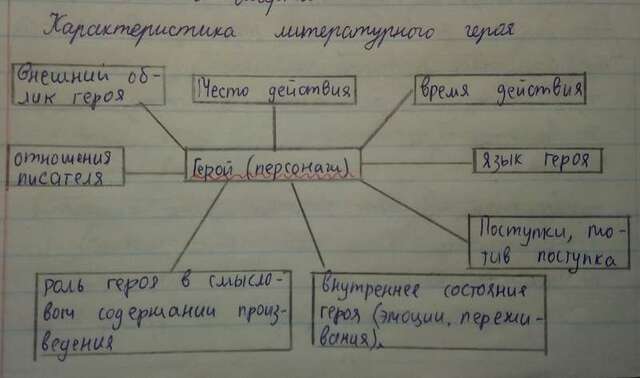 Характеристика литературного героя
Внешний об-
лик героя
Место действия
время действия
отношения
писателя
Герой (персонаж)
язык героя
Поступки, мо-
тив поступка
роль героя в смысло-
вом содержании произ-
ведения
внутреннее состояние
героя (эмоции, пережи-
вания).